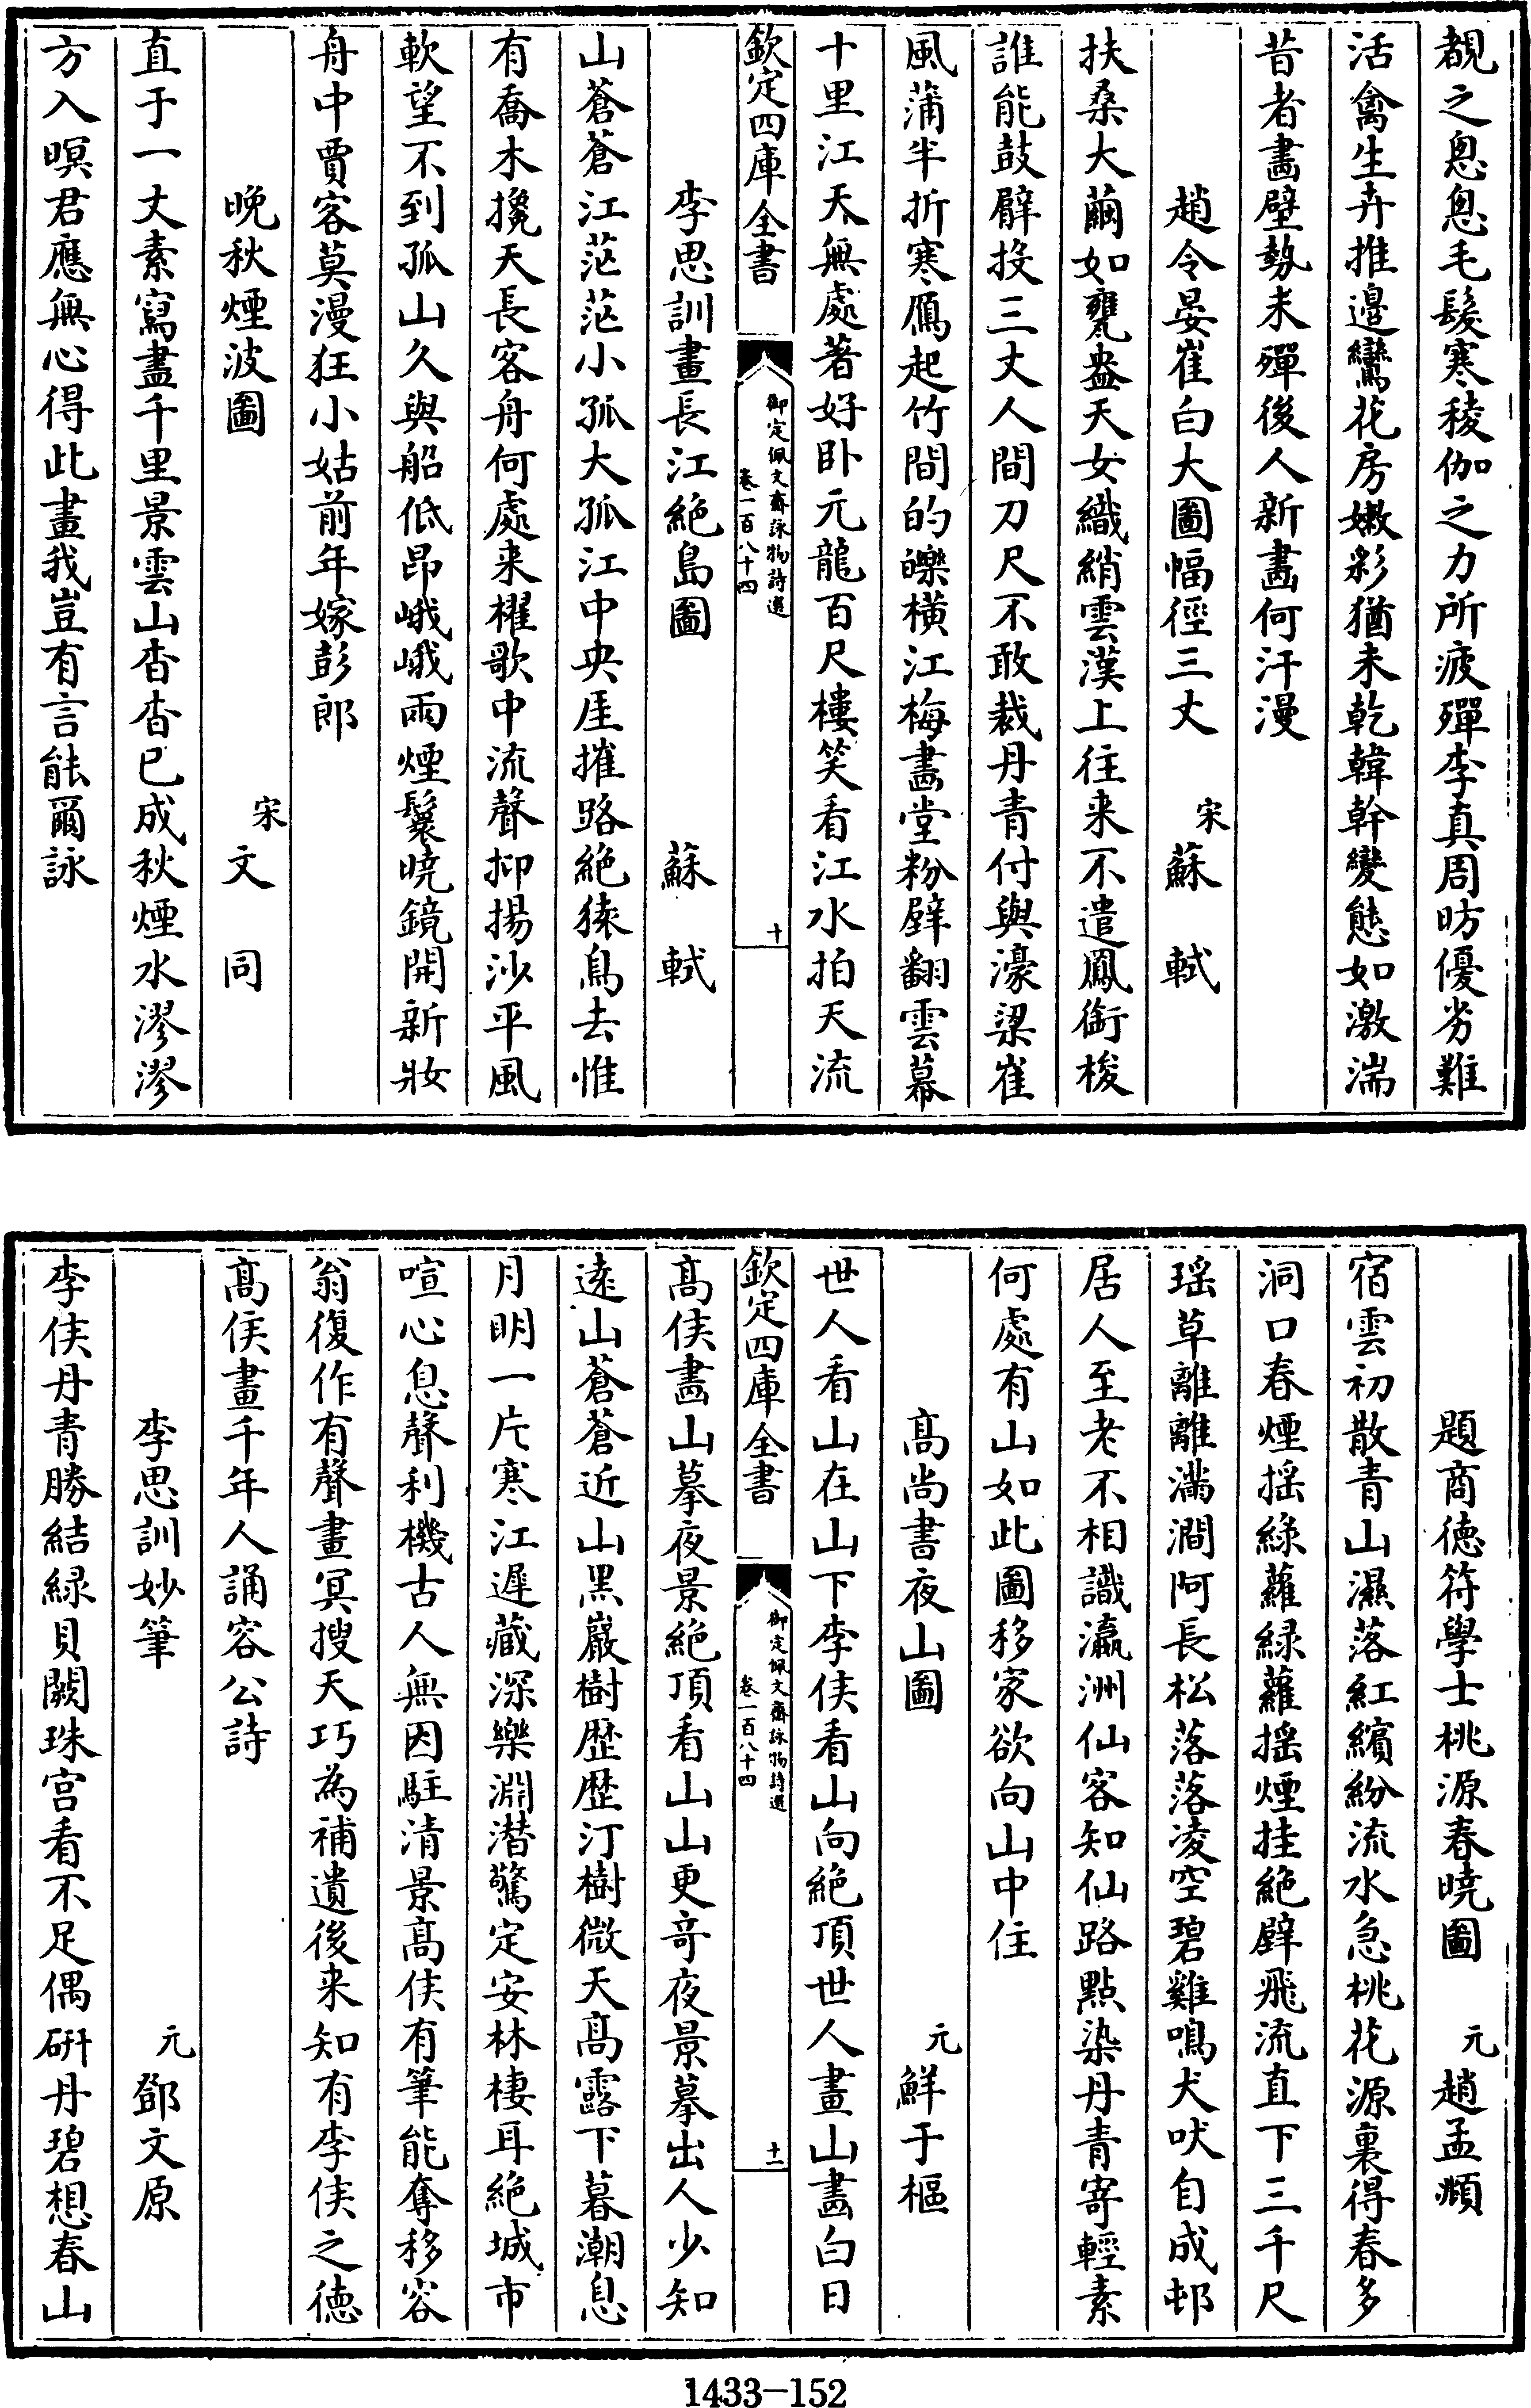 覩之恖恖毛髮寒稜伽之力所疲殫李真周昉優劣難
活禽生卉推邊鸞花房嫩彩猶未乾韓幹變態如激湍
昔者畵壁勢未殫後人新畵何汗漫
趙令晏崔白大圖幅徑三丈 宋蘇軾
扶桑大繭如甕盎天女織綃雲漢上往来不遣鳳銜梭
誰能鼓臂投三丈人間刀尺不敢裁丹青付與濠梁崔
風蒲半折寒鴈起竹間的皪橫江梅畵堂粉壁翻雲幕
十里江天無處著好卧元龍百尺樓笑看江水拍天流
欽定四庫全書 御定佩文齋詠物詩選 卷一百八十四 十
李思訓畫長江絶島圖 蘇軾
山蒼蒼江茫茫小孤大孤江中央厓摧路絶猿鳥去惟
有喬木攙天長客舟何處来櫂歌中流聲抑揚沙平風
軟望不到孤山久與船低昂峨峨兩煙鬟曉鏡開新妝
舟中賈客莫漫狂小姑前年嫁彭郎
晚秋煙波圖 宋文同
直于一丈素寫盡千里景雲山杳杳已成秋煙水漻漻
方入暝君應無心得此畫我豈有言能爾詠
題商徳符學士桃源春曉圖 元趙孟頫
宿雲初散青山濕落紅繽紛流水急桃花源裏得春多
洞口春煙摇緑蘿緑蘿摇煙挂絶壁飛流直下三千尺
瑶草離離滿澗阿長松落落凌空碧雞鳴犬吠自成邨
居人至老不相識瀛洲仙客知仙路點染丹青寄輕素
何處有山如此圖移家欲向山中住
髙尚書夜山圖 元鮮于樞
世人看山在山下李侯看山向絶頂世人畫山畵白日
髙侯畵山摹夜景絶頂看山山更竒夜景摹出人少知
逺山蒼蒼近山黒巖樹歴歴汀樹微天髙露下暮潮息
月明一片寒江遲藏深樂淵潜驚定安林棲耳絶城市
喧心息聲利機古人無因駐清景髙侯有筆能奪移容
翁復作有聲畫冥搜天巧為補遺後来知有李侯之徳
髙侯畫千年人誦容公詩
李思訓妙筆 元鄧文原
李侯丹青勝結緑貝闕珠宫看不足偶硏丹碧想春山
1433-152